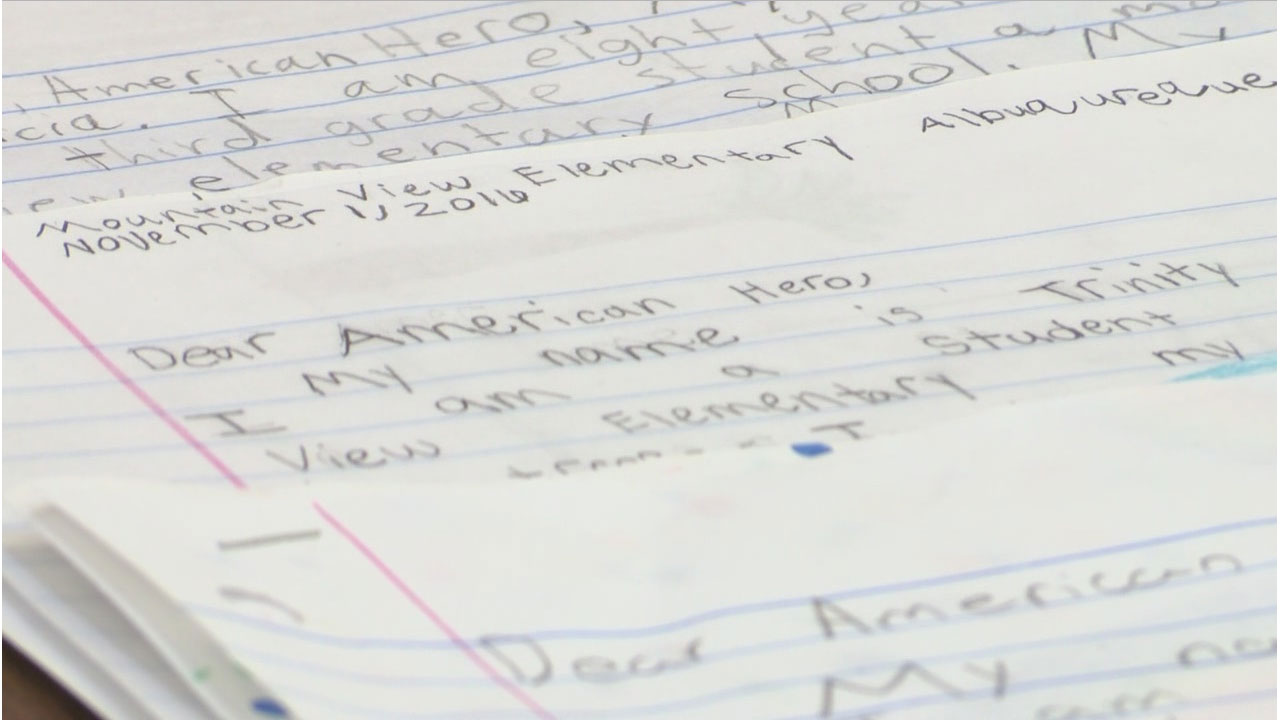 American Hero,
I am eight
third grade student a
elementary school. My
Mountain View Elementary Albuaureaue
November 1, 2016
Dear American Hero,
My name is Trinity
I am a Student
View Elementary my
I
Dear American
My
am